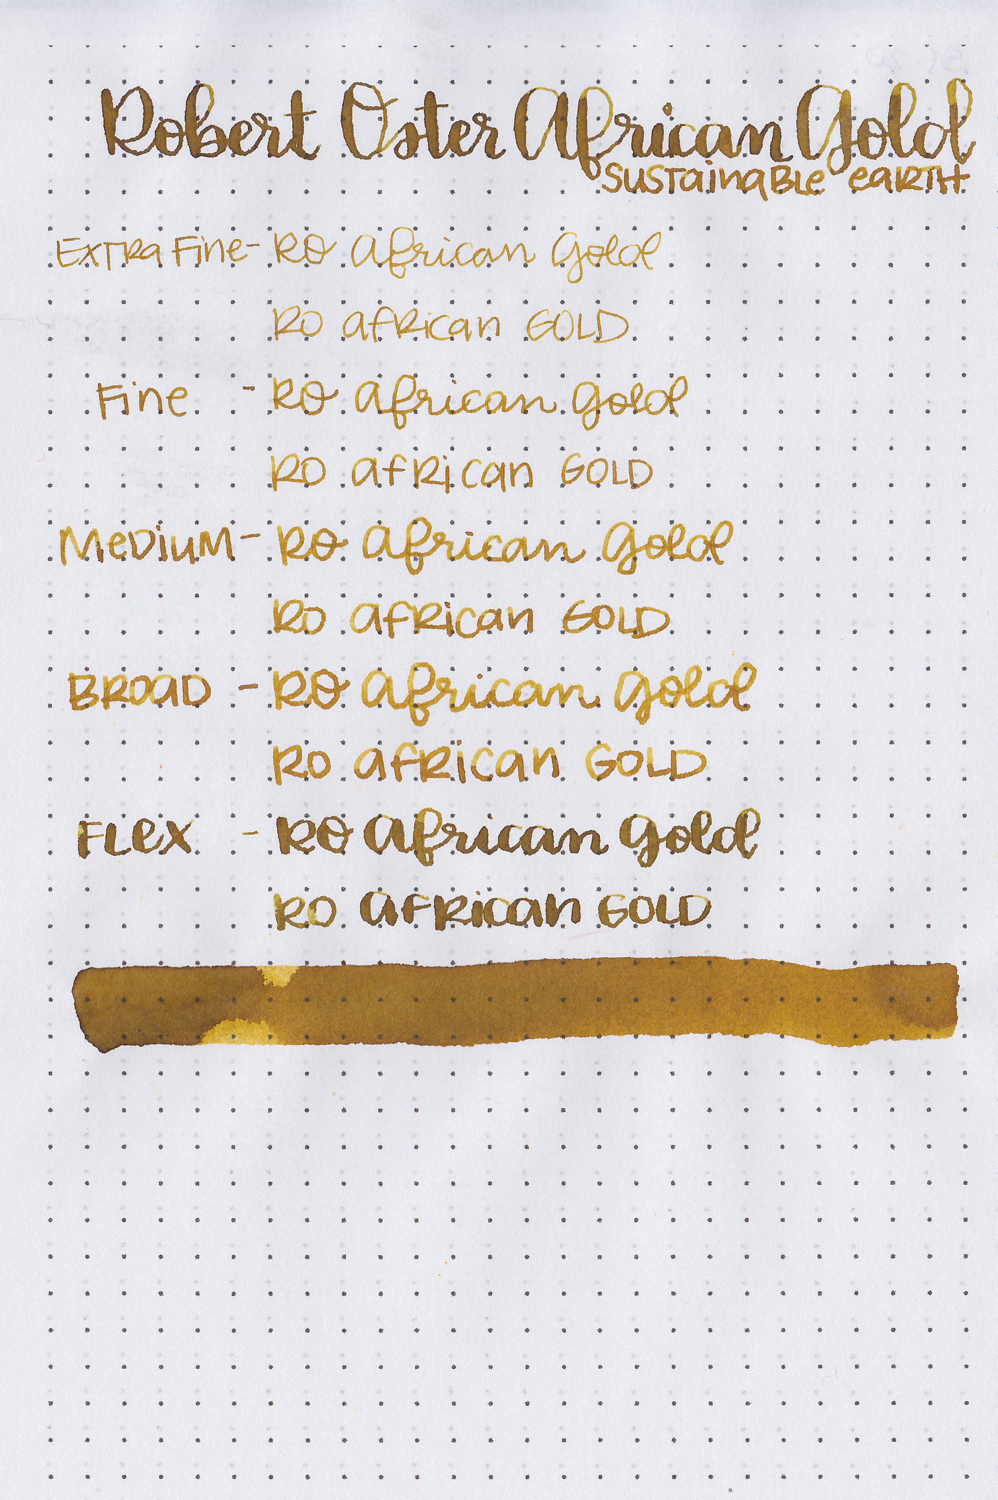 Robert Oster African Gold
Sustainable Earth
Extra Fine - RO African Gold
RO African GOLD
Fine - RO African Gold
RO African GOLD
Medium - RO African Gold
RO African GOLD
Broad - RO African Gold
RO African GOLD
Flex - RO African Gold
RO African GOLD